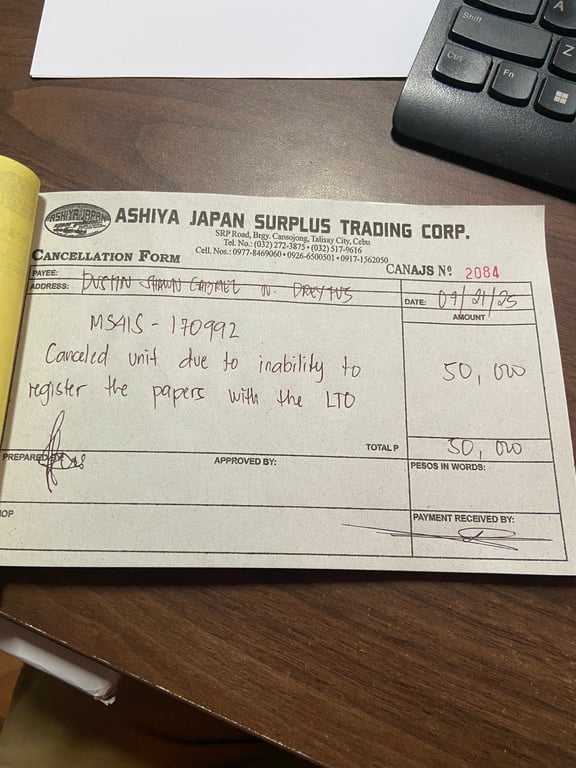 Shift
A
Z
Ctrl
Fn
ASHIYA JAPAN
ASHIYA JAPAN SURPLUS TRADING CORP.
SRP Road, Brgy. Cansojong, Talisay City, Cebu
Tel. No.: (032) 272-3875 • (032) 517-9616
Cell. Nos.: 0977-8469060 • 0926-6500501 • 0917-1562050
CANCELLATION FORM
CANAJS Nº 2084
PAYEE: DUSTIN SHAWN GABRIEL N. DREYFUS
ADDRESS:
DATE: 09/21/25
AMOUNT
MS41S - 170992
Canceled unit due to inability to
register the papers with the LTO
50,000
TOTAL P 50,000
PREPARED BY:
APPROVED BY:
PESOS IN WORDS:
PAYMENT RECEIVED BY: